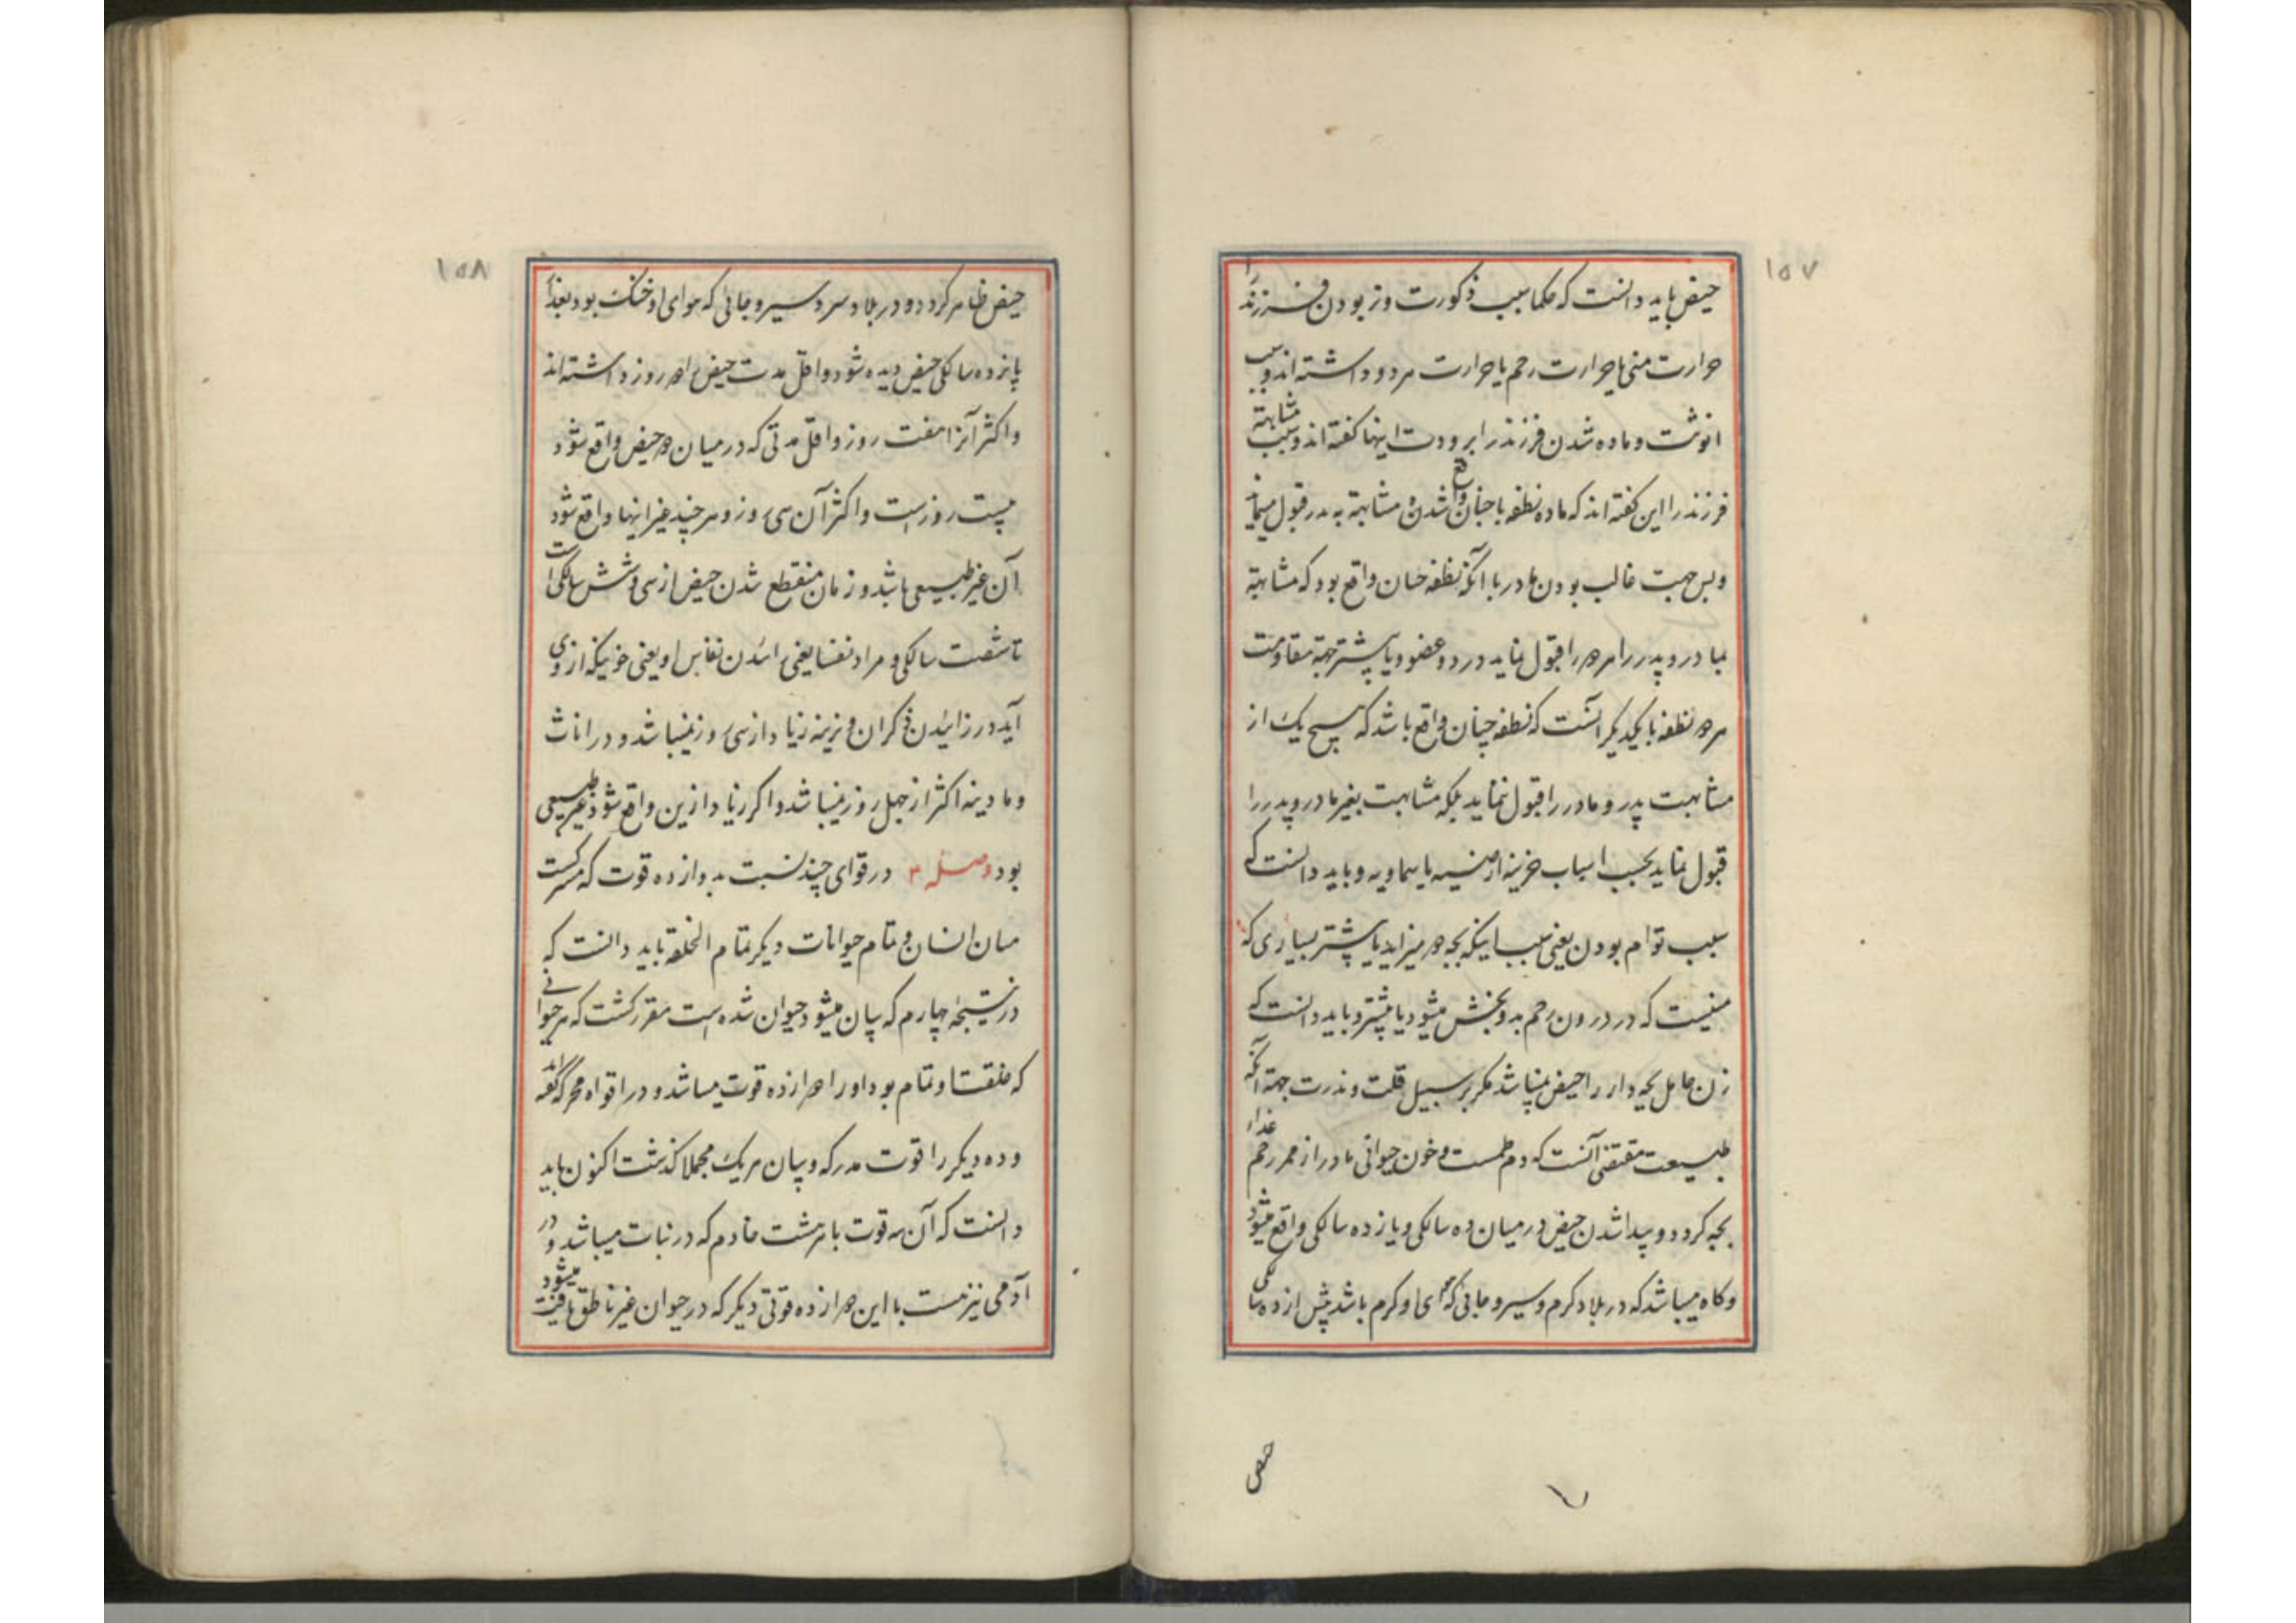 ۱۵۷
حیض باید دانست که حکما سبب ذکورت و نر بودن فرزند را
حرارت منی یا حرارت رحم یا حرارت هر دو داشته‌اند و سبب
انوثت و ماده شدن فرزند را برودت اینها کفته‌اند و سبب مشابهة
فرزند را این کفته‌اند که ماده نطفه با چنان واقع شدن مشابهة پدر قبول مینماید
و بس جهت غالب بودن مادر با آنکه نطفه چنان واقع بود که مشابهة
بمادر و پدر را هر دو را قبول نماید در دو عضو و یا پیشتر جهة مقاومت
هر دو نطفه با یکدیکر آنست که نطفه چنان واقع باشد که هیچ یک از
مشابهت پدر و مادر را قبول ننماید بلکه مشابهت بغیر مادر و پدر را
قبول نماید بحسب اسباب خزینه ارضیه یا سماویه و باید دانست که
سبب توام بودن یعنی سبب اینکه بچه دو میزاید یا پیشتر بسیاری که
منیست که در درون رحم بدو بخش میشود یا پیشتر و باید دانست که
زن حامل بچه دار را حیض نمیباشد مکر بر سبیل قلت و ندرت جهة آنکه
طبیعت مقتضی آنست که دم طمست و خون حیوانی مادر از ممر رحم غذاء
بچه کردد و پیدا شدن حیض در میان ده سالکی و یازده سالکی واقع میشود
و کاه میباشد که در بلاد کرم و سیر و جائی که هوای او کرم باشد پیش از ده سالکی
حیض
۱۵۸
حیض ظاهر کردد و در بلاد سرد سیر و جائی که هوای او خنک بود بعد از
پانزده سالکی حیض دیده شود و اقل مدت حیض را دو روز داشته‌اند
و اکثر آنرا هفت روز و اقل مدتی که در میان دو حیض واقع شود
بیست روزست و اکثر آن سی روز و هر چند غیر اینها واقع شود
آن غیر طبیعی باشد و زمان منقطع شدن حیض از سی و شش سالکی است
تا شصت سالکی و مراد نفسا یعنی زائیدن نفاس او یعنی خونیکه از وی
آید در زائیدن ذکران و نرینه زیاد از سی روز نمیباشد و در اناث
و مادینه اکثر از چهل روز نمیباشد و اکر زیاد ازین واقع شود غیر طبیعی
بود وصله ۳ در قوای چند نسبت بدوازده قوت که مشرکست
میان انسان و تمام حیوانات دیکر تمام الخلقة باید دانست که
در نتیجۀ چهارم که بیان میشود حیوان شده است مقرر کشت که هر حیوانی
که خلقت او تمام بود او را دوازده قوت میباشد و دو را قواء محرکه کفته‌اند
و ده دیکر را قوت مدرکه و بیان هر یک مجملا کذشت اکنون باید
دانست که آن سه قوت با هشت خادم که در نبات میباشد و در
آدمی نیز هست با این دوازده قوتی دیکر که در حیوان غیر ناطق یافت میشود